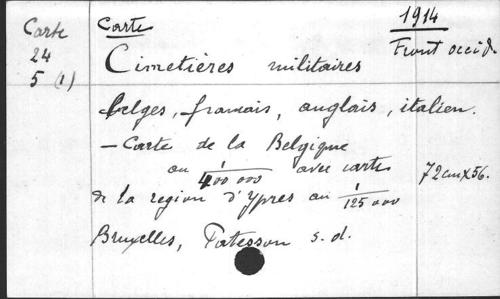 Carte
24
5 (1)
Carte
1914
Front occid.
Cimetières militaires
belges, français, anglais, italien.
— Carte de la Belgique
au 1/400 000 avec carte
de la region d'Ypres au 1/125 000
72cmx56.
Bruxelles, Patesson s.d.